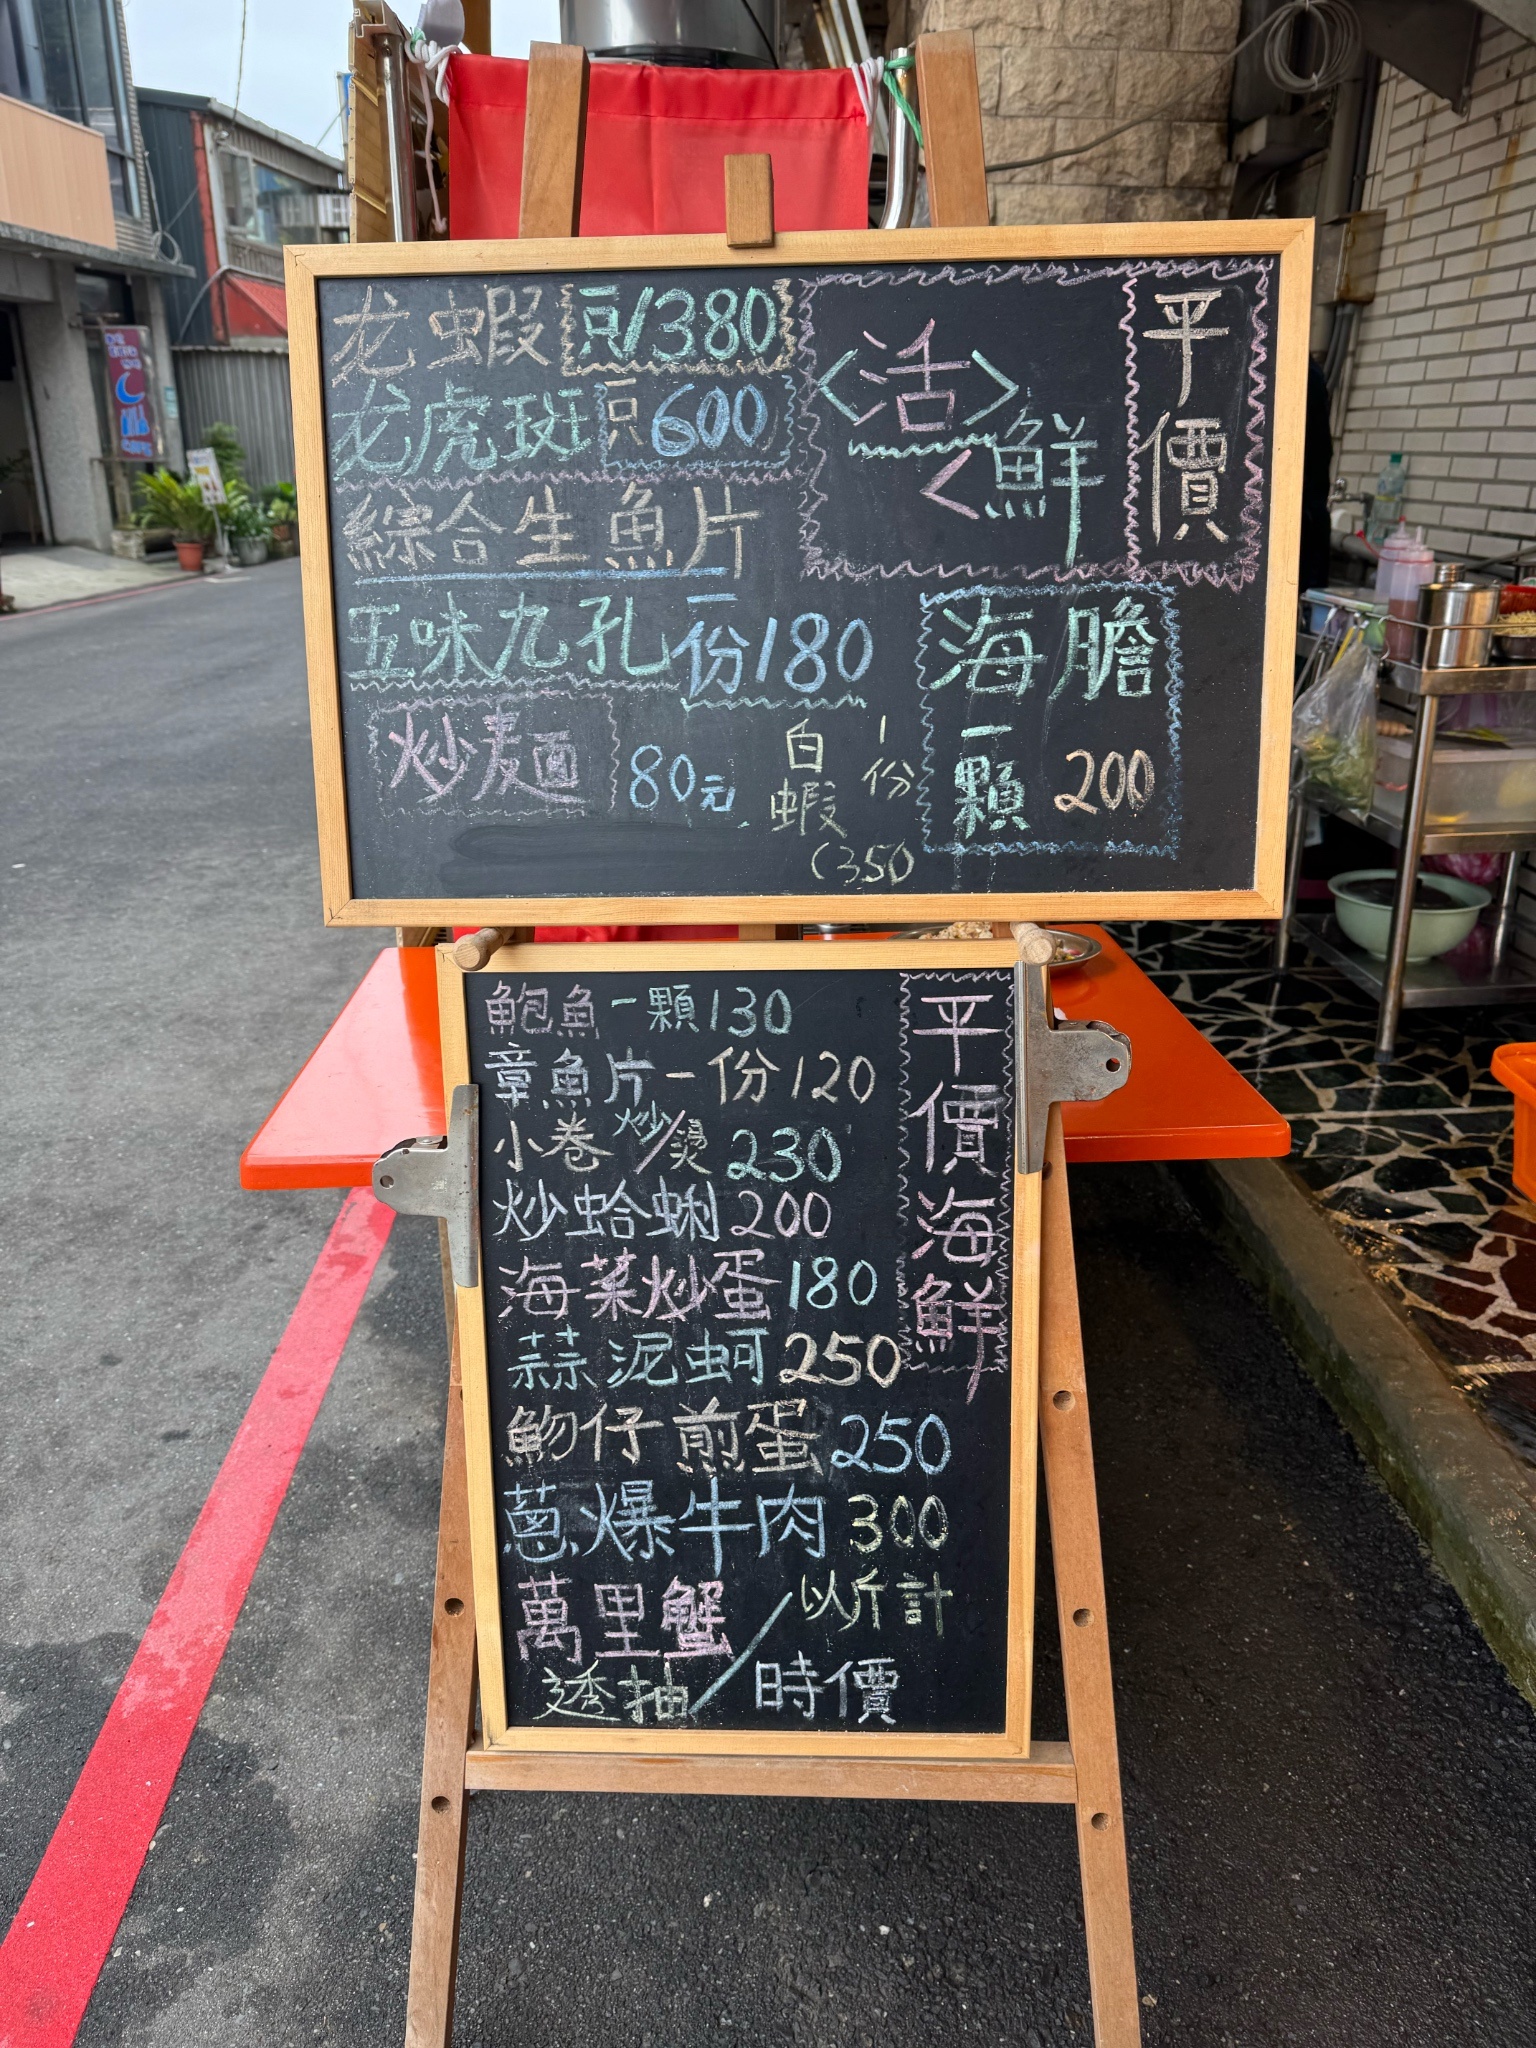 龙蝦一只/380
龙虎斑一只600
綜合生魚片
五味九孔一份180
炒麵 80元
白蝦
1份
(350
平價
<活>
<鮮
海膽
一顆 200
鮑魚一顆130
章魚片一份120
小卷 炒/燙 230
炒蛤蜊200
海菜炒蛋180
蒜泥蚵250
魩仔煎蛋250
蔥爆牛肉300
萬里蟹/以斤計
透抽/時價
平價海鮮